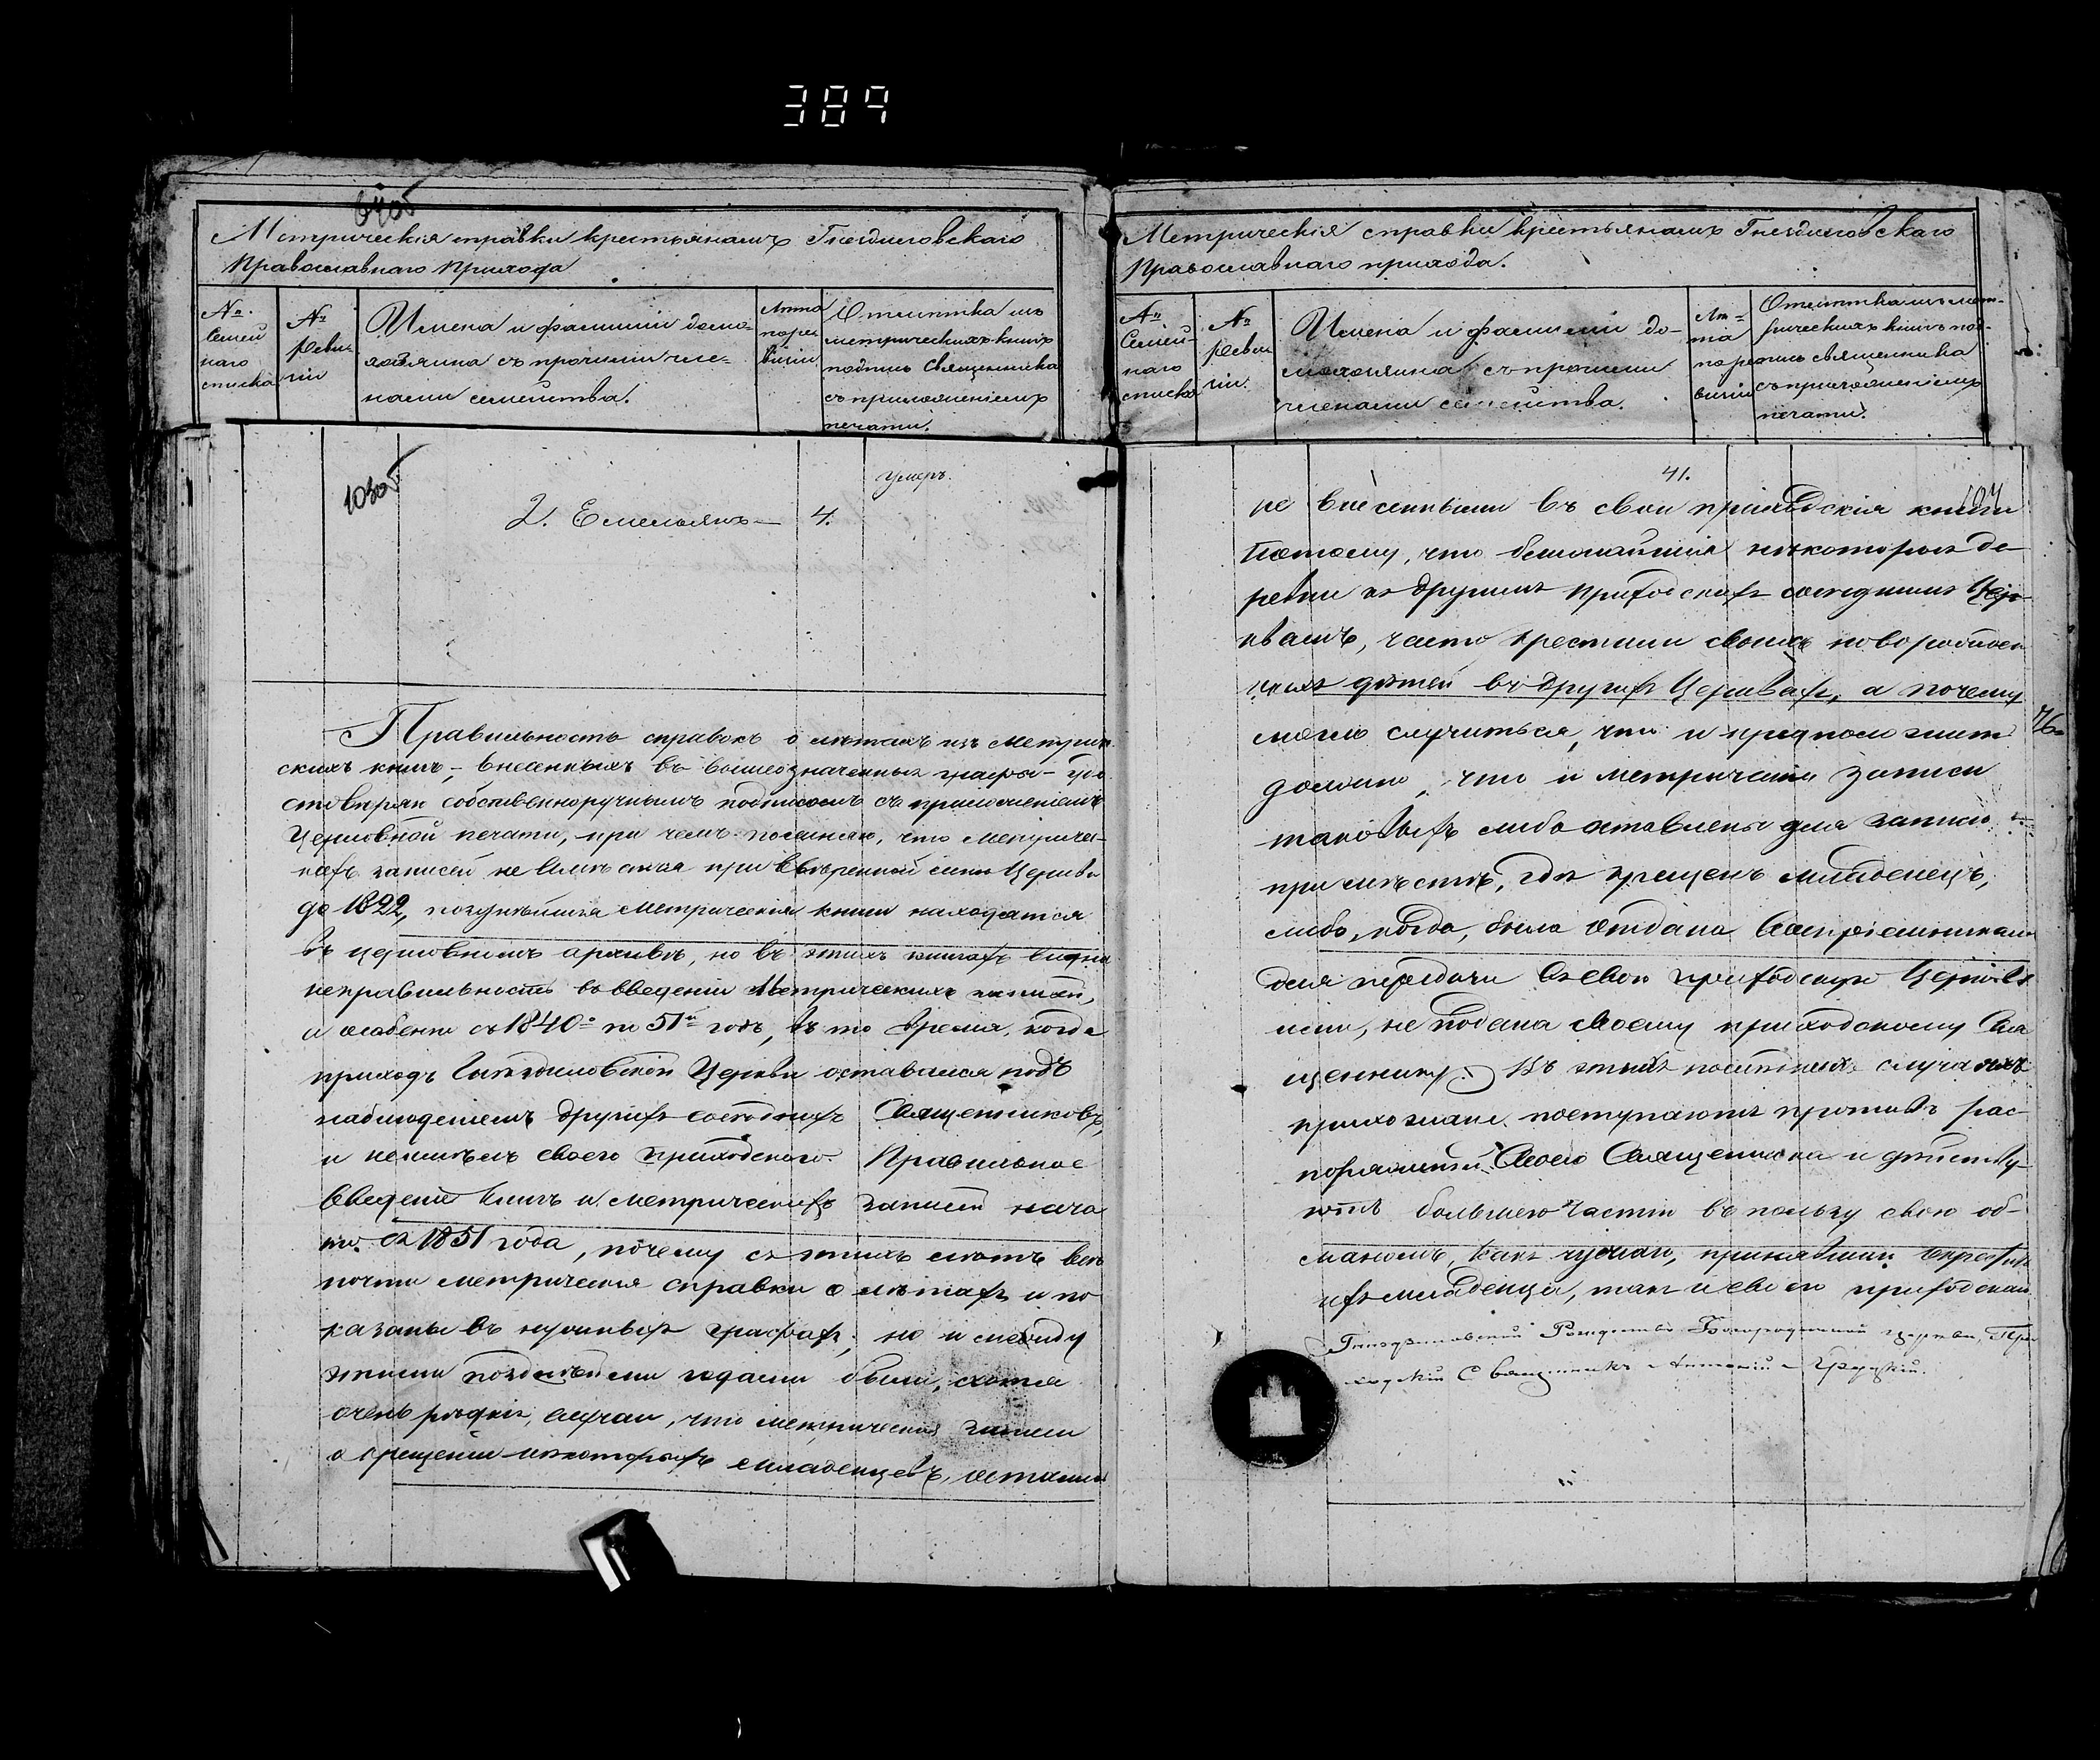 389
Метрическія справки крестьянамъ Гнездиловскаго
Православнаго Прихода
№
Семей
наго
списка
№
Реви-
зіи
Имена и фамиліи домо-
хозяина съ прочими чле-
нами семейства.
Лѣта
по ре
визіи
Отмѣтка изъ
метрическихъ книгъ
подпись Священника
съ приложеніемъ
печати.
103об
2. Емельянъ — 4.
умеръ.
Правильность справокъ о лѣтахъ изъ Метриче
скихъ книгъ, внесенныхъ въ вышеозначенныя графы - удо
стовѣряю собственноручнымъ подписомъ съ приложеніемъ
Церковной печати, при чемъ поясняю, что Метричес-
кихъ записей не имѣется при ввѣренной мнѣ Церкви
до 1822, позднѣйшія Метрическія книги находятся
въ церковномъ архивѣ, но въ этихъ книгахъ видна
неправильность во введеніи Метрическихъ записей,
и особенно съ 1840го по 51й годъ, въ то время, когда
приходъ Гнѣздиловской Церкви оставался подъ
наблюденіемъ другихъ сосѣднихъ Священниковъ,
и неимѣлъ своего приходского. Правильное
введеніе книгъ и метрическихъ записей нача
то съ 1851 года, почему съ этихъ лѣтъ всѣ
почти метрическія справки о лѣтахъ и по
казаны въ нужныхъ графахъ; но и между
этими позднѣйшими годами были, хотя
очень рѣдкіе, случаи, что метрическія записи
о крещеніи некоторыхъ младенцевъ, остались
Метрическія справки крестьянамъ Гнездиловскаго
Православнаго прихода.
№
Семей-
наго
списка
№
Ревиз
зіи.
Имена и фамиліи до-
мохозяина съ прочими
членами семейства.
Лѣ-
та
по ре
визіи
Отмѣтка изъ мет-
рическихъ книгъ под-
пись священника
съ приложеніемъ
печати.
41.
104
не внесенными въ свои приходскія книги
потому, что ближайшія нѣкоторыя де-
ревни къ другимъ приходскимъ сосѣднимъ Цер-
квамъ, часто крестили своихъ новорожден
ныхъ дѣтей въ другихъ Церквахъ, а почему
могло случиться, что и предположить
должно, что и метрическія записи
таковыхъ либо оставлены для записи
при мѣстѣ, гдѣ крещенъ младенецъ,
либо, когда, была отдана Воспріемникамъ
для передачи въ свою приходскую Церковь
ими, не подана своему приходскому Свя
щеннику. Въ этихъ послѣднихъ случаяхъ
прихожане поступаютъ противъ рас-
поряженій своего Священника и дѣйству-
ютъ большею частію въ пользу свою об-
маномъ, какъ чужаго, принявшаго
ихъ младенца, такъ и своего приходскаго
Гнездиловской Рождество Богородичной церкви, При
ходскій Священникъ Антоній
76